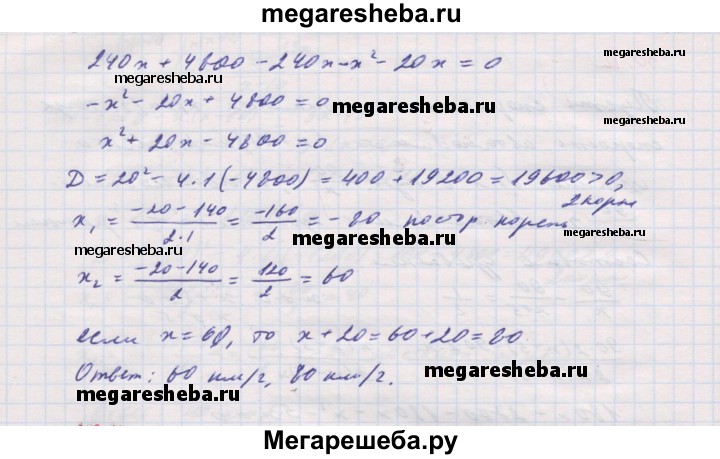 megaresheba.ru
240x + 4800 - 240x - x² - 20x = 0
megaresheba.ru
megaresheba.ru
-x² - 20x + 4800 = 0
megaresheba.ru
x² + 20x - 4800 = 0
D = 20² - 4·1(-4800) = 400 + 19200 = 19600 > 0,
2 корня
x₁ = (-20-140)/(2·1) = (-160)/2 = -80 постор. корень
megaresheba.ru
megaresheba.ru
x₂ = (-20-140)/2 = 120/2 = 60
megaresheba.ru
если x = 60, то x + 20 = 60 + 20 = 80
Ответ: 60 км/г, 80 км/г.
megaresheba.ru
megaresheba.ru
Мегарешеба.ру